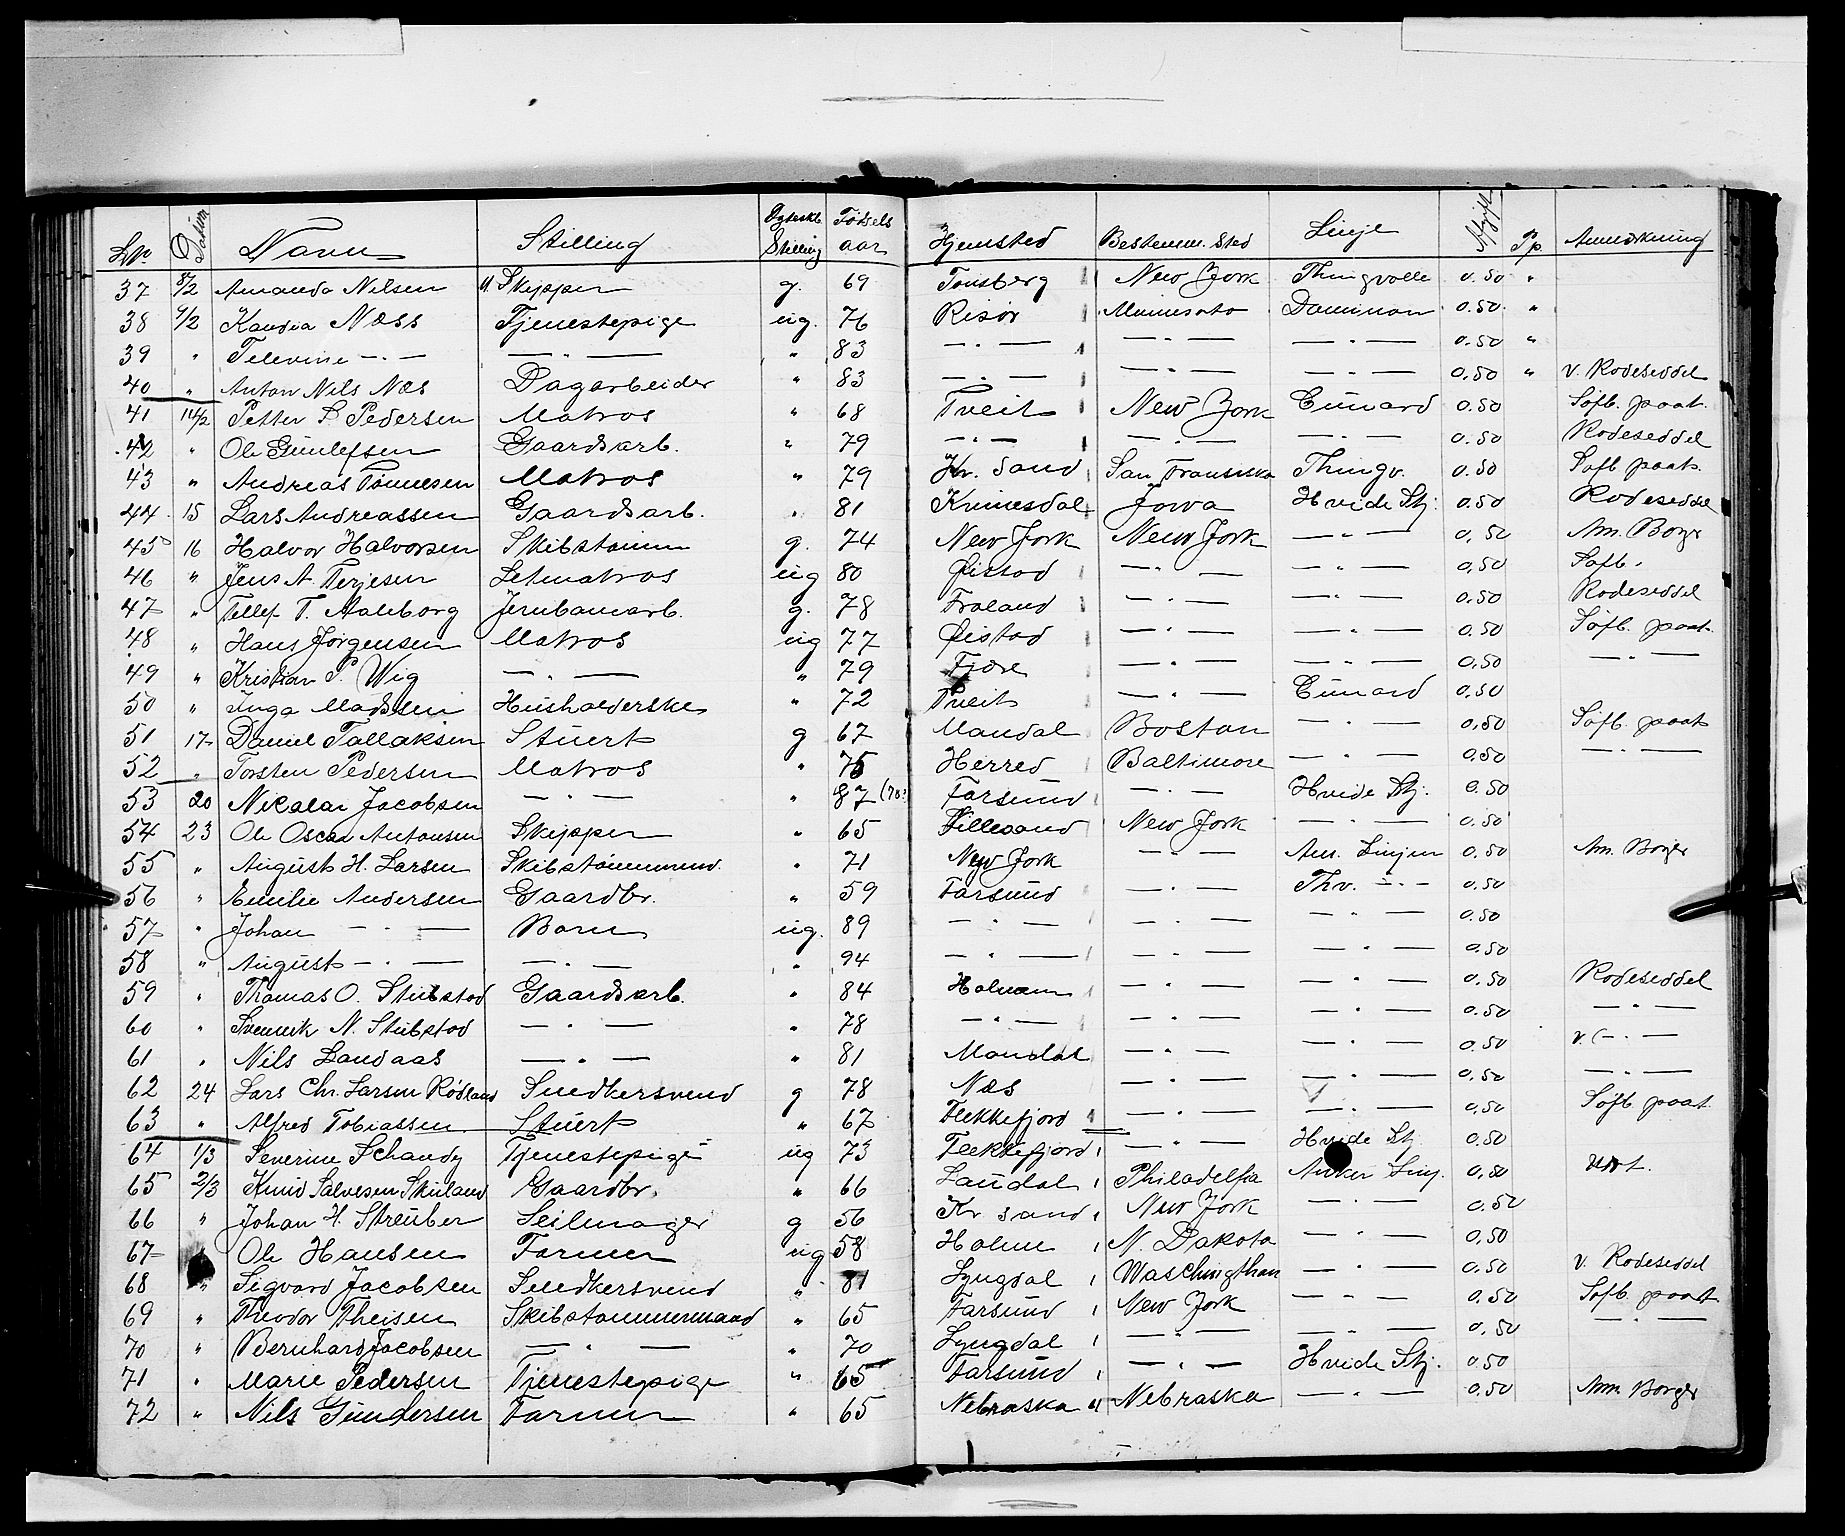 LNo Datum Navn Stilling Ægteskb. Stilling Fødsels aar Hjemsted Bestemm. Sted Linje Afgift Pp. Anmærkning
37 8/2 Amanda Nilsen Skipper g. 69 Tønsberg New York Thingvalle 0.50 "
38 9/2 Næss Tjenestepige ug. 76 Risør Minnesota Dominion 0.50 "
39 " Televine — " — — " — " 83 — " — — " — — " — 0.50 "
40 " Anton Nils Næs Dagarbeider " 83 — " — — " — — " — 0.50 " v. Rodeseddel
41 14/2 Petter S Pedersen Matros " 68 Tveit New York Cunard 0.50 Søfb. paat.
42 " Ole Gunlefsen Gaardsarb. " 79 — " — — " — — " — 0.50 Rodeseddel
43 " Andreas Tønnesen Matros " 79 Kr. Sand San Fransisko Thingv. 0.50 Søfb paat.
44 15 Lars Andreassen Gaardsarb. " 81 Kvinesdal Jowa Hvide Stj. 0.50 Rodeseddel
45 16 Halvor Halvorsen Skibstømm g. 74 New York New York — " — 0.50 Am. Borger
46 " Jens A. Terjesen Letmatros ug 80 Øistad — " — — " — 0.50 Søfb.
47 " Tellef T. Aalborg Jernbanearb. g. 78 Froland — " — — " — 0.50 Rodeseddel
48 " Hans Jørgensen Matros ug 77 Øistad — " — — " — 0.50 Søfb. paat.
49 " Kristian P. Wig — " — " 79 Fjære — " — — " — 0.50 — " —
50 " Inga Madssen Husholderske " 72 Tveit — " — Cunard 0.50
51 17 Daniel Tallaksen Stuert g 67 Mandal Boston — " — 0.50 Søfb. paat
52 " Torsten Pedersen Matros " 75 Herred Baltimore — " — 0.50 — " —
53 20 Nikolai Jacobsen — " — " 87 (78? Farsund — " — Hvide Stj. 0.50
54 23 Ole Oscar Antonsen Skipper " 65 Lillesand New York — " — 0.50
55 " August H. Larsen Skibstømmermd. " 71 New York — " — Am. Linjen 0.50 Am. Borger
56 " Emilie Andersen Gaardbr. " 59 Farsund — " — Thv. — " — 0.50
57 " Johan — " — Barn ug. 89 — " — — " — — " — 0.50
58 " August — " — — " — " 94 — " — — " — — " — 0.50
59 " Thomas O. Stubstad Gaardsarb. " 84 Holum — " — — " — 0.50 Rodeseddel
60 " N. Stubstad — " — " 78 — " — — " — — " — 0.50 — " —
61 " Nils Landaas — " — " 81 Mandal — " — — " — 0.50 v. — " —
62 24 Lars Chr. Larsen Rødland Snedkersvend g 78 Næs — " — — " — 0.50 — " —
63 " Alfred Tobiassen Stuert " 67 Flekkefjord — " — — " — 0.50 Søfb paat
64 1/3 Severine Schandy Tjenestepige ug 73 Flekkefjord — " — Hvide Stj 0.50
65 2/3 Knud Salvesen Gaardbr. " 66 Laudal Philadelfia Anker Linj. 0.50
66 " Johan H. Streuber Seilmager g 56 Kr sand New York — " — 0.50
67 " Ole Hansen Farmer ug 58 Holum N. Dakota — " — 0.50
68 " Sigvard Jacobsen Snedkersvend " 81 Lyngdal Waschingthon — " — 0.50 v. Rodeseddel
69 " Theodor Theisen Skibstømmermand " 65 Farsund New York — " — 0.50 Søfb. paat
70 " Bernhard Jacobsen — " — " 70 Lyngdal — " — — " — 0.50 — " —
71 " Marie Pedersen Tjenestepige " 65 Farsund — " — Hvide Stj. 0.50
72 " Nils Gundersen Farmer " 65 Nebraska Nebraska — " — 0.50 Am. Borger